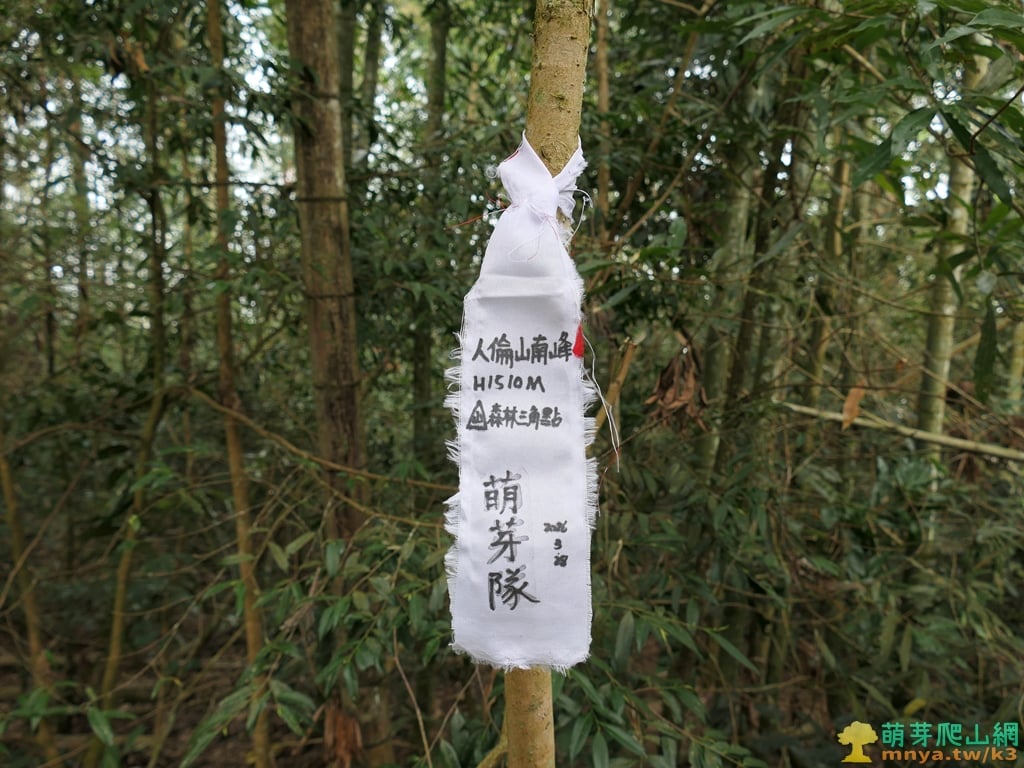 人倫山南峰
H1510M
森林三角點
萌芽隊
2026
3
28
萌芽爬山網
mnya.tw/k3